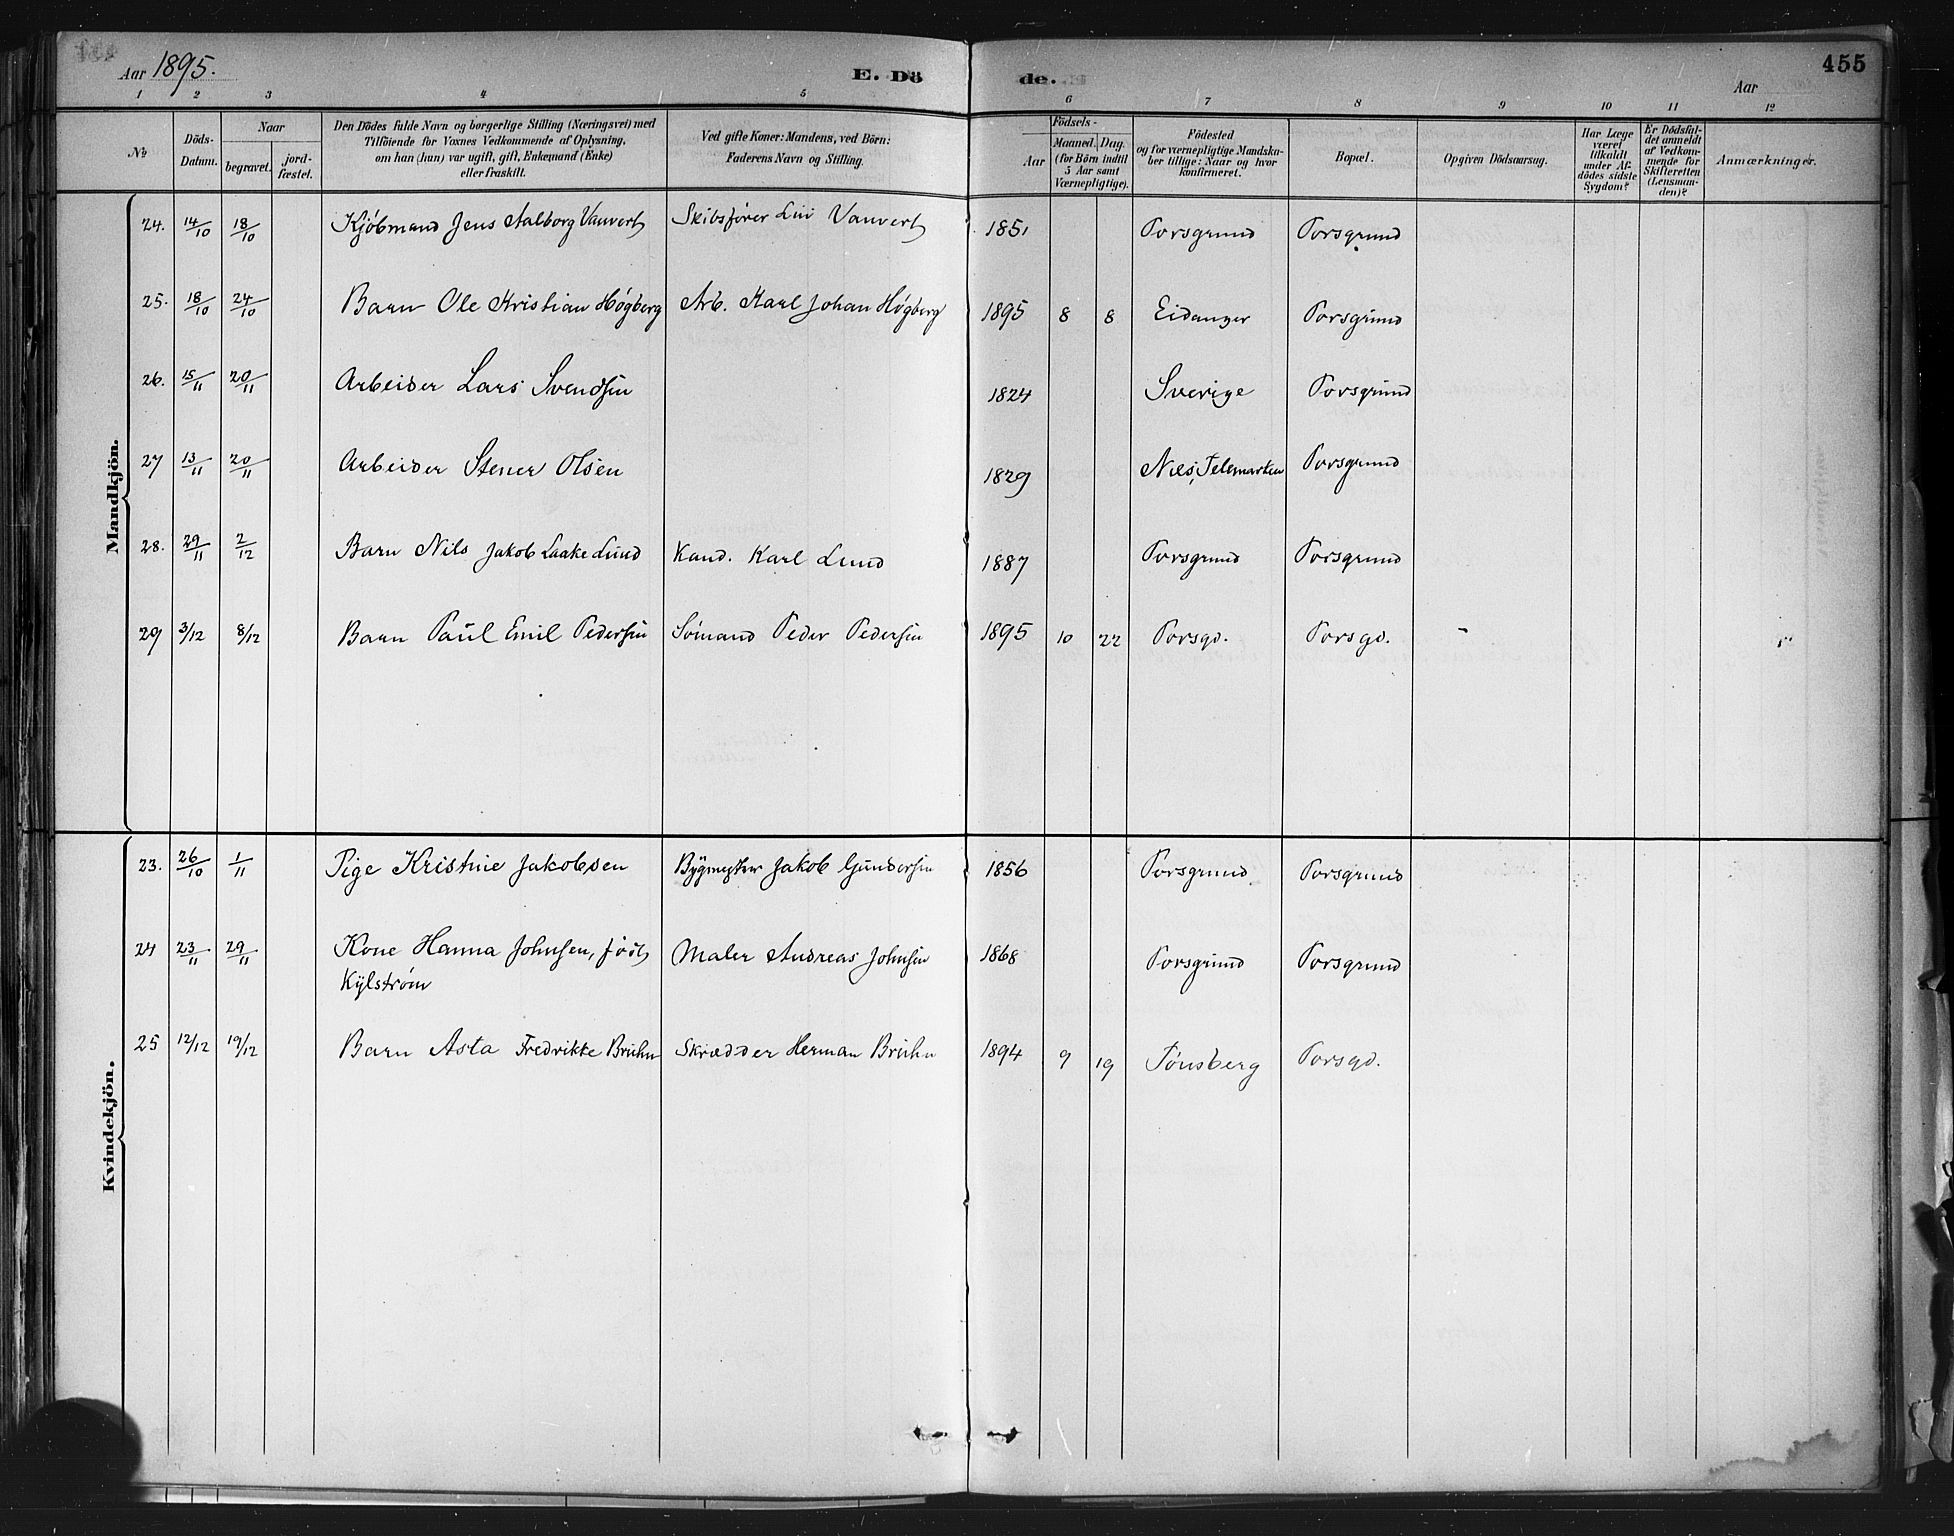 Aar 1895.
E. Dö
de.
Aar
455
1 2 3 4 5 6 7 8 9 10 11 12
No
Döds-
Datum.
Naar
begravet.
jord-
fæstet.
Den Dödes fulde Navn og borgerlige Stilling (Næringsvei) med
Tilföiende for Voxnes Vedkommende af Oplysning,
om han (hun) var ugift, gift, Enkemand (Enke)
eller fraskilt.
Ved gifte Koner: Mandens, ved Börn:
Faderens Navn og Stilling.
Födsels-
Aar
Maaned. Dag.
(for Börn indtil
5 Aar samt
Værnepligtige).
Födested
og for værnepligtige Mandska-
ber tillige: Naar og hvor
konfirmeret.
Bopæl.
Opgiven Dödsaarsag.
Har Læge
været
tilkaldt
under Af-
dödes sidste
Sygdom?
Er Dödsfal-
det anmeldt
af Vedkom-
mende for
Skifteretten
(Lensman-
den)?
Anmærkninger.
Mandkjön.
24. 14/10 18/10 Kjöbmand Jens Aalborg Vauvert Skibsfører Vauvert 1851 Porsgrund Porsgrund
25. 18/10 24/10 Barn Ole Kristian Høgberg Arb. Karl Johan Høgberg 1895 8 8 Eidanger Porsgrund
26. 15/11 20/11 Arbeider Lars Svendsen 1824 Sverige Porsgrund
27 13/11 20/11 Arbeider Stener Olsen 1829 Telemarken Porsgrund
28. 29/11 2/12 Barn Nils Jakob Laake Lund Kand. Karl Lund 1887 Porsgrund Porsgrund
29 3/12 8/12 Barn Paul Emil Pedersen Sömand Peder Pedersen 1895 10 22 Porsgd. Porsgd.
Kvindekjön.
23. 26/10 1/11 Pige Kristine Jakobsen Bygmester Jakob Gundersen 1856 Porsgrund Porsgrund
24 23/11 29/11 Kone Hanna Johnsen, født Maler Andreas Johnsen 1868 Porsgrund Porsgrund
Kylström
25 12/12 19/12 Barn Asta Fredrikke Bruhn Skrædder Herman Bruhn 1894 9 19 Tönsberg Porsgd.